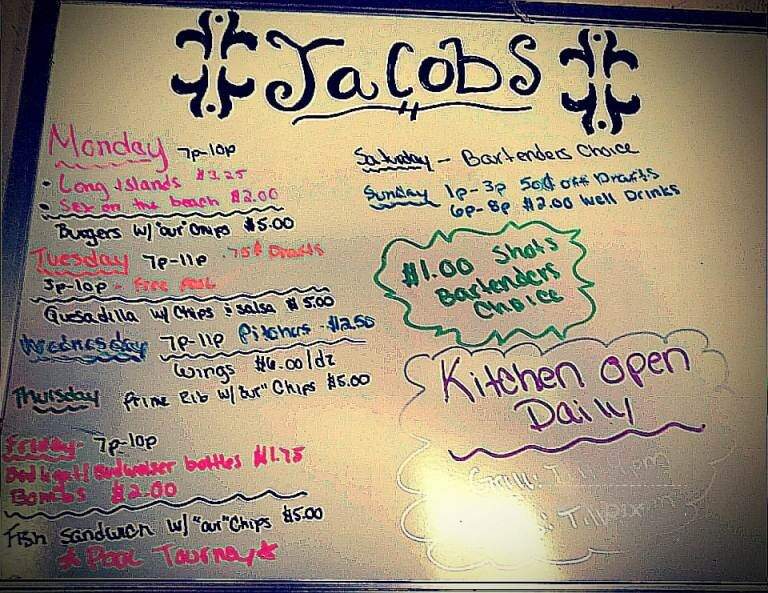 Jacobs
Monday 7p-10p
• Long Islands $3.25
• Sex on the beach $2.00
Burgers w/ "our" Chips $5.00
Tuesday 7p-11p .75¢ Drafts
3p-10p - Free Pool
Quesadilla w/ Chips & salsa $5.00
Wednesday 7p-11p Pitchers -
Wings $6.00/dz
Thursday Prime Rib w/ "our" Chips $5.00
Friday- 7p-10p
Bud Light/Budweiser bottles $1.75
Bombs $2.00
Fish Sandwich w/ "our" Chips $5.00
Pool Tourney
Saturday - Bartenders Choice
Sunday 1p-3p 50¢ off Drafts
6p-8p $2.00 Well Drinks
$1.00 Shots
Bartenders
Choice
Kitchen Open
Daily